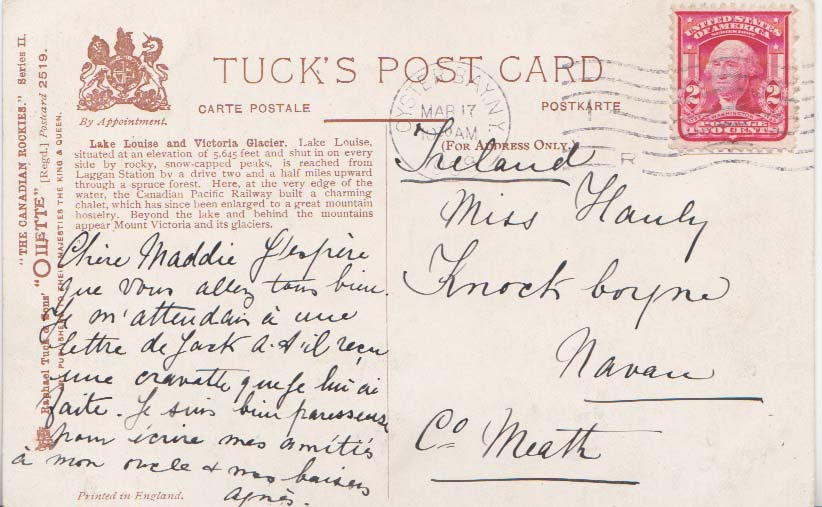 "THE CANADIAN ROCKIES." Series II.
Raphael Tuck & Sons' "OILETTE" [Regd.] Postcard 2519.
ART PUBLISHERS TO THEIR MAJESTIES THE KING & QUEEN.
By Appointment.
TUCK'S POST CARD
CARTE POSTALE
POSTKARTE
(FOR ADDRESS ONLY.)
Lake Louise and Victoria Glacier. Lake Louise,
situated at an elevation of 5,645 feet and shut in on every
side by rocky, snow-capped peaks, is reached from
Laggan Station by a drive two and a half miles upward
through a spruce forest. Here, at the very edge of the
water, the Canadian Pacific Railway built a charming
chalet, which has since been enlarged to a great mountain
hostelry. Beyond the lake and behind the mountains
appear Mount Victoria and its glaciers.
Chère Maddie J'espère
que vous allez tous bien.
Je m'attendais à une
lettre de Jack A-t'il reçu
une cravatte que je lui ai
faite. Je suis bien paresseuse
pour écrire mes amitiés
à mon oncle & mes baisers
Agnès.
Printed in England.
OYSTER BAY, N.Y.
MAR 17
AM
R
UNITED STATES
OF AMERICA
2 2
WASHINGTON
POSTAGE
TWO CENTS
Ireland
Miss Hanly
Knockboyne
Navan
Co Meath